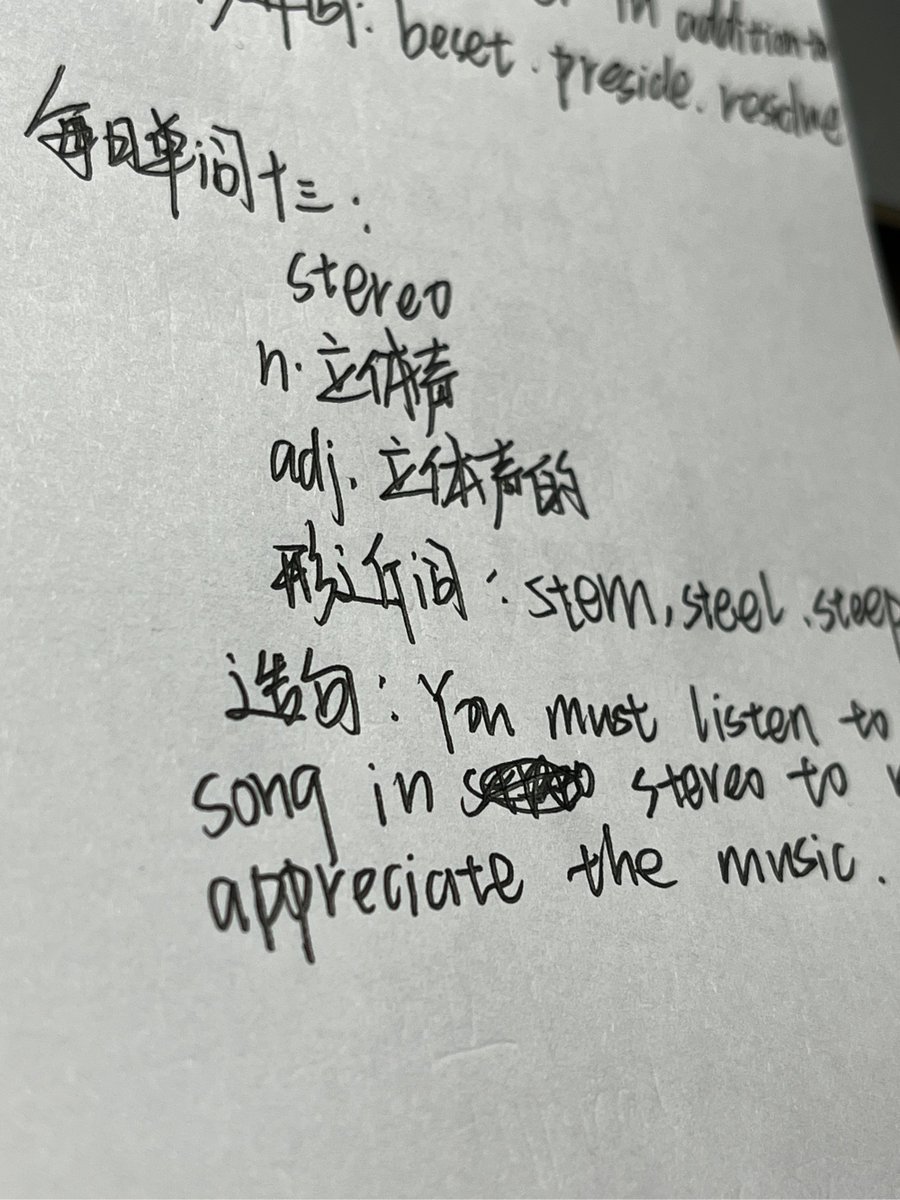 in addition to
beset. preside. resolve
每日单词十三:
stereo
n. 立体声
adj. 立体声的
形近词: stem, steel, steep
造句: You must listen to
song in stereo to
appreciate the music.